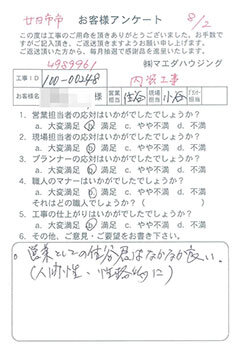 廿日市市 お客様アンケート 8/2
この度は工事のご用命を頂きありがとうございました。お手数で
すがご記入頂き、ご返送頂きますようお願い申し上げます。
ご返送頂いた方から、毎月抽選で感謝品を進呈いたします。
4989961 ㈱マエダハウジング
工事ID 100-00248 内装工事
お客様名 様 営業担当 住谷 現場担当 小谷 プランナー担当
1. 営業担当者の応対はいかがでしたでしょうか?
a. 大変満足 b. 満足 c. やや不満 d. 不満
2. 現場担当者の応対はいかがでしたでしょうか?
a. 大変満足 b. 満足 c. やや不満 d. 不満
3. プランナーの応対はいかがでしたでしょうか?
a. 大変満足 b. 満足 c. やや不満 d. 不満
4. 職人のマナーはいかがでしたでしょうか?
a. 大変満足 b. 満足 c. やや不満 d. 不満
それはどの職人でしょうか?( )
5. 工事の仕上がりはいかがでしたでしょうか?
a. 大変満足 b. 満足 c. やや不満 d. 不満
6. その他、ご意見・ご要望をお書き下さい。
営業としての住谷君はなかなか良い。
(人間性、性格的に)